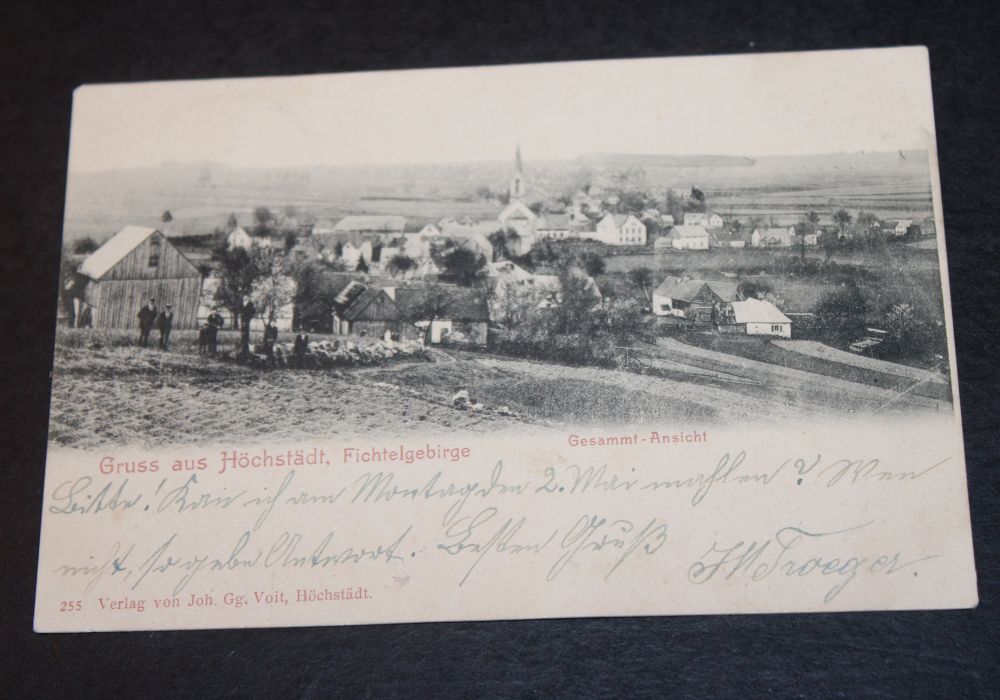 Gruss aus Höchstädt, Fichtelgebirge
Gesammt-Ansicht
Bitte! Kan ich am Montag den 2. Mai mahlen? Wen
nicht, so gebe Antwort. Besten Gruß
Troeger
255 Verlag von Joh. Gg. Voit, Höchstädt.